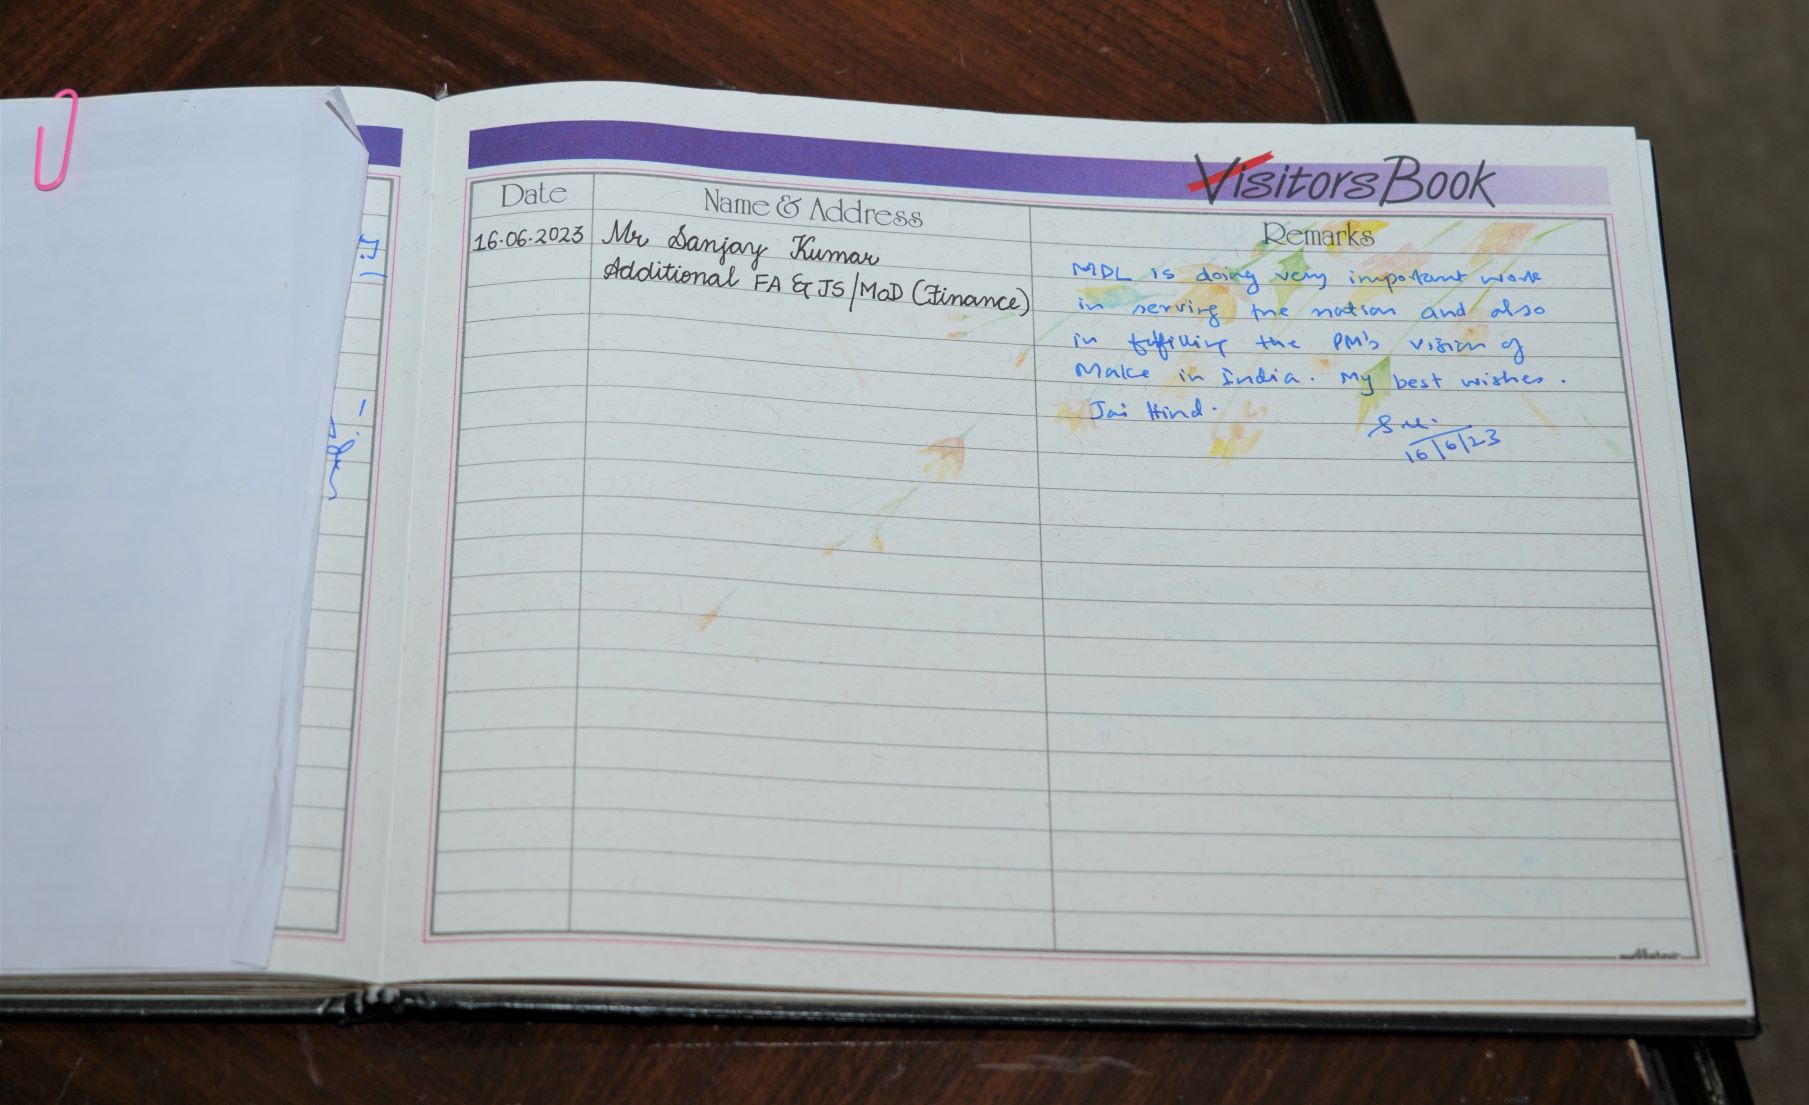 Visitors Book
Date Name & Address Remarks
16.06.2023 Mr Sanjay Kumar
Additional FA & JS/MoD (Finance)
MDL is doing very important work
in serving the nation and also
in fulfilling the PM's vision of
Make in India. My best wishes.
Jai Hind.
16/6/23